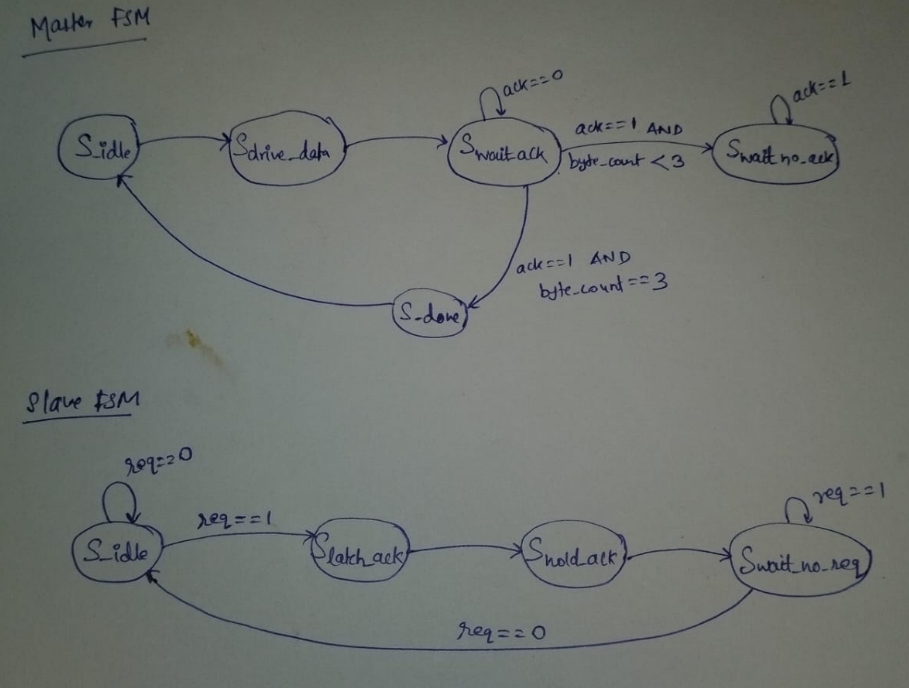 Master FSM
ack==0
ack==1
S_idle
S_drive_data
S_wait_ack
ack==1 AND
byte_count <3
S_wait_no_ack
ack==1 AND
byte_count==3
S_done
Slave FSM
req==0
req==1
req==1
S_idle
S_latch_ack
S_hold_ack
S_wait_no_req
req==0